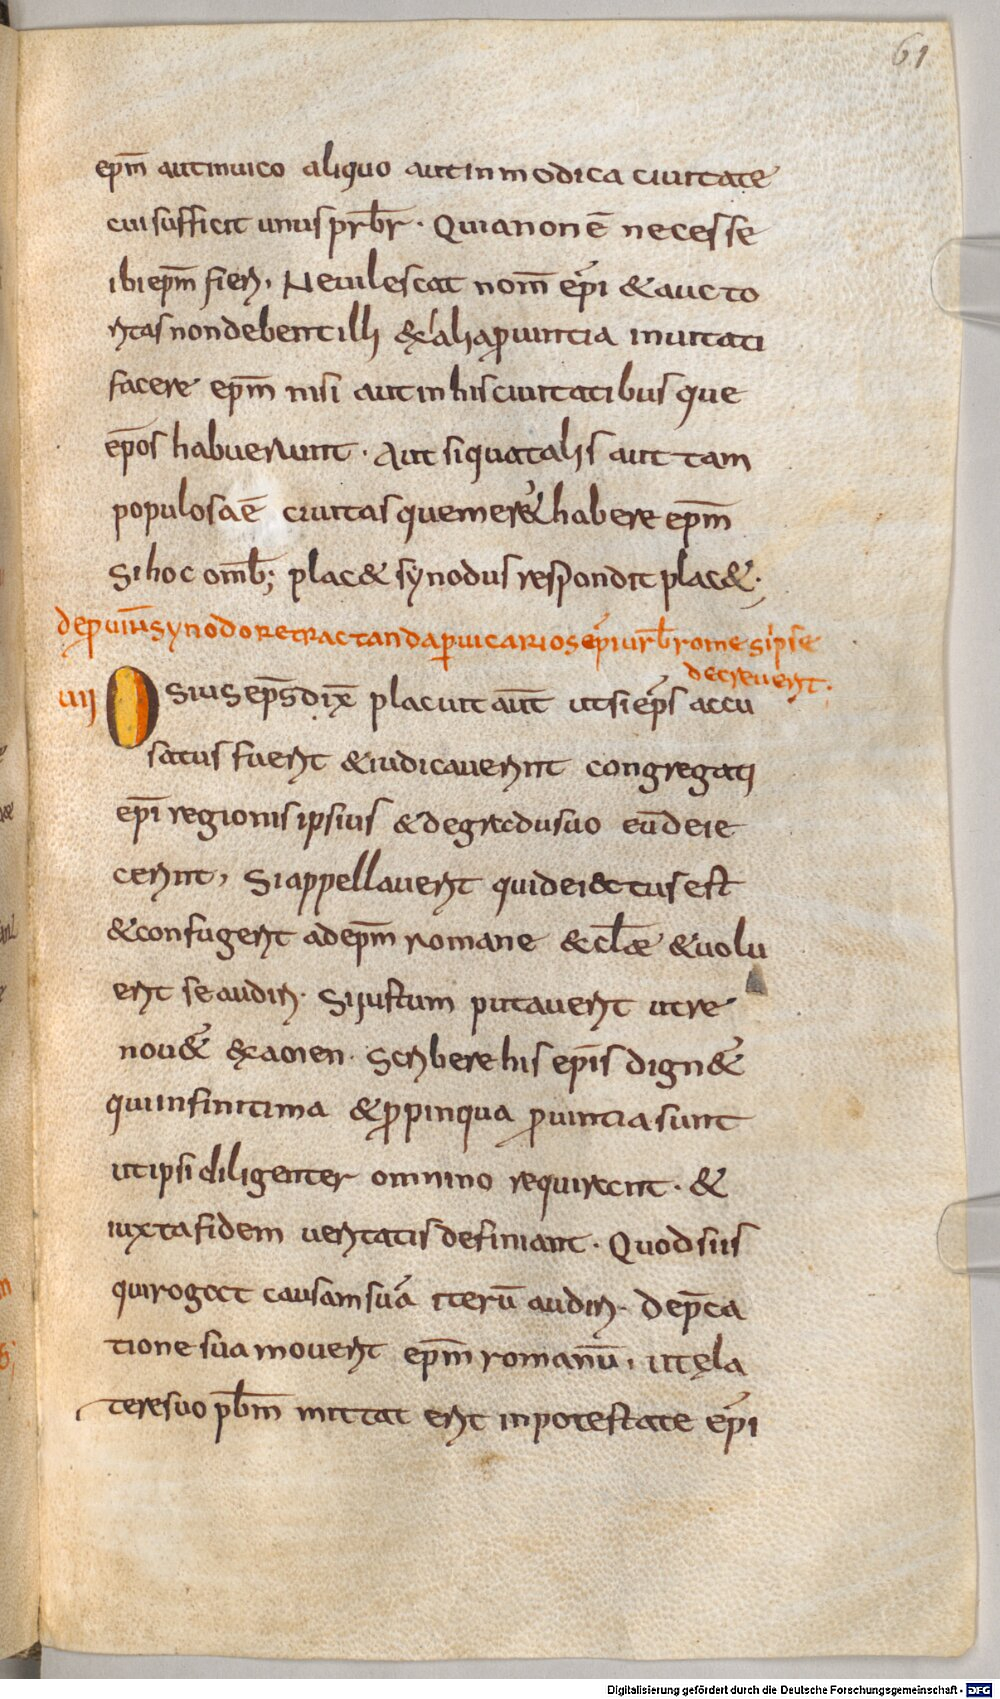 61
ep̄m aut in uico aliquo aut in modica ciuitate
cui sufficit unus pr̄br · Quia non ē necesse
ibi ep̄m fieri, Ne uilescat nom̄ ep̄i & aucto
ritas non debent illi ex alia ꝓuintia inuitati
facere ep̄m nisi aut in his ciuitatibus que
ep̄os habuerunt · Aut si qua talis aut tam
populosa ē ciuitas que mer&̄ habere ep̄m
Si hoc om̄b; plac& synodus respondit plac&;
de ꝓuin̄ synodo retractanda ꝑ uicarios ep̄i urb̄ rome si ipse
decreuerit.
VII Osius ep̄s dix̄ placuit aūt ut si ep̄s accu
satus fuerit & iudicauerint congregati
ep̄i regionis ipsius & de gradu suo eū deie
cerint, Si appellauerit qui deiectus est
& confugerit ad ep̄m romane & cl̄æ & uolu
erit se audiri · Si justum putauerit ut re
nou&̄ examen · Scribere his ep̄is dign&̄
qui in finitima & ꝓpinqua ꝓuintia sunt
ut ipsi diligenter omnino requirant · &
iuxta fidem ueritatis definiant · Quod si is
qui rogat causam suā iterū audiri · dep̄ca
tione sua mouerit ep̄m romanū, ut ę la
tere suo pb̄m mittat erit in potestate ep̄i
Digitalisierung gefördert durch die Deutsche Forschungsgemeinschaft - DFG